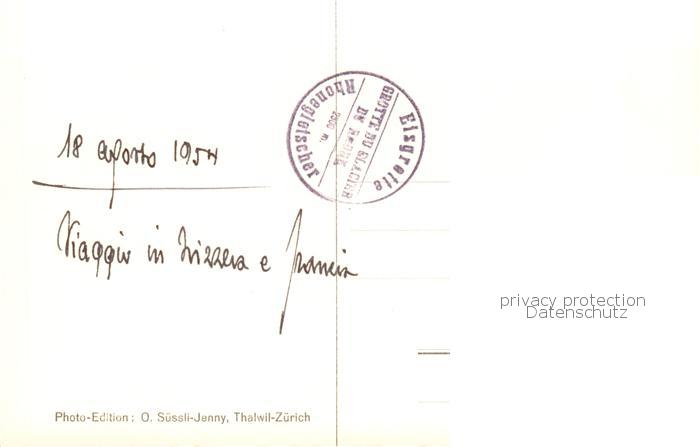 Eisgrotte
GROTTE DU GLACIER
DU RHONE
2300 m.
Rhonegletscher
18 agosto 1954
Viaggio in Svizzera e Francia
privacy protection
Datenschutz
Photo-Edition: O. Süssli-Jenny, Thalwil-Zürich